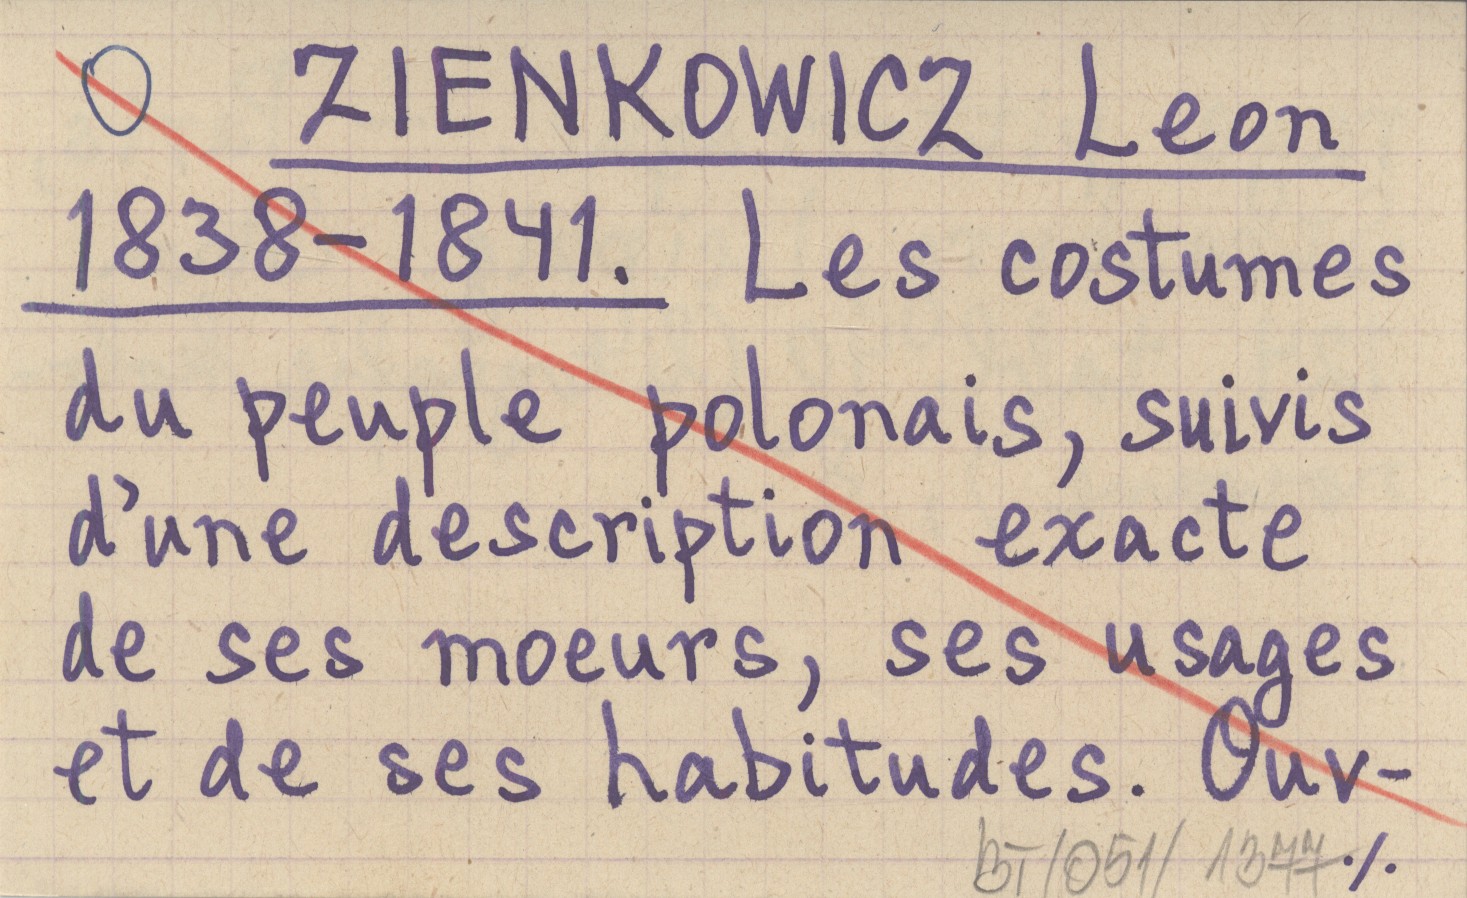 ZIENKOWICZ Leon
1838-1841. Les costumes
du peuple polonais, suivis
d'une description exacte
de ses moeurs, ses usages
et de ses habitudes. Ouv-
BT/051/1377 ./.